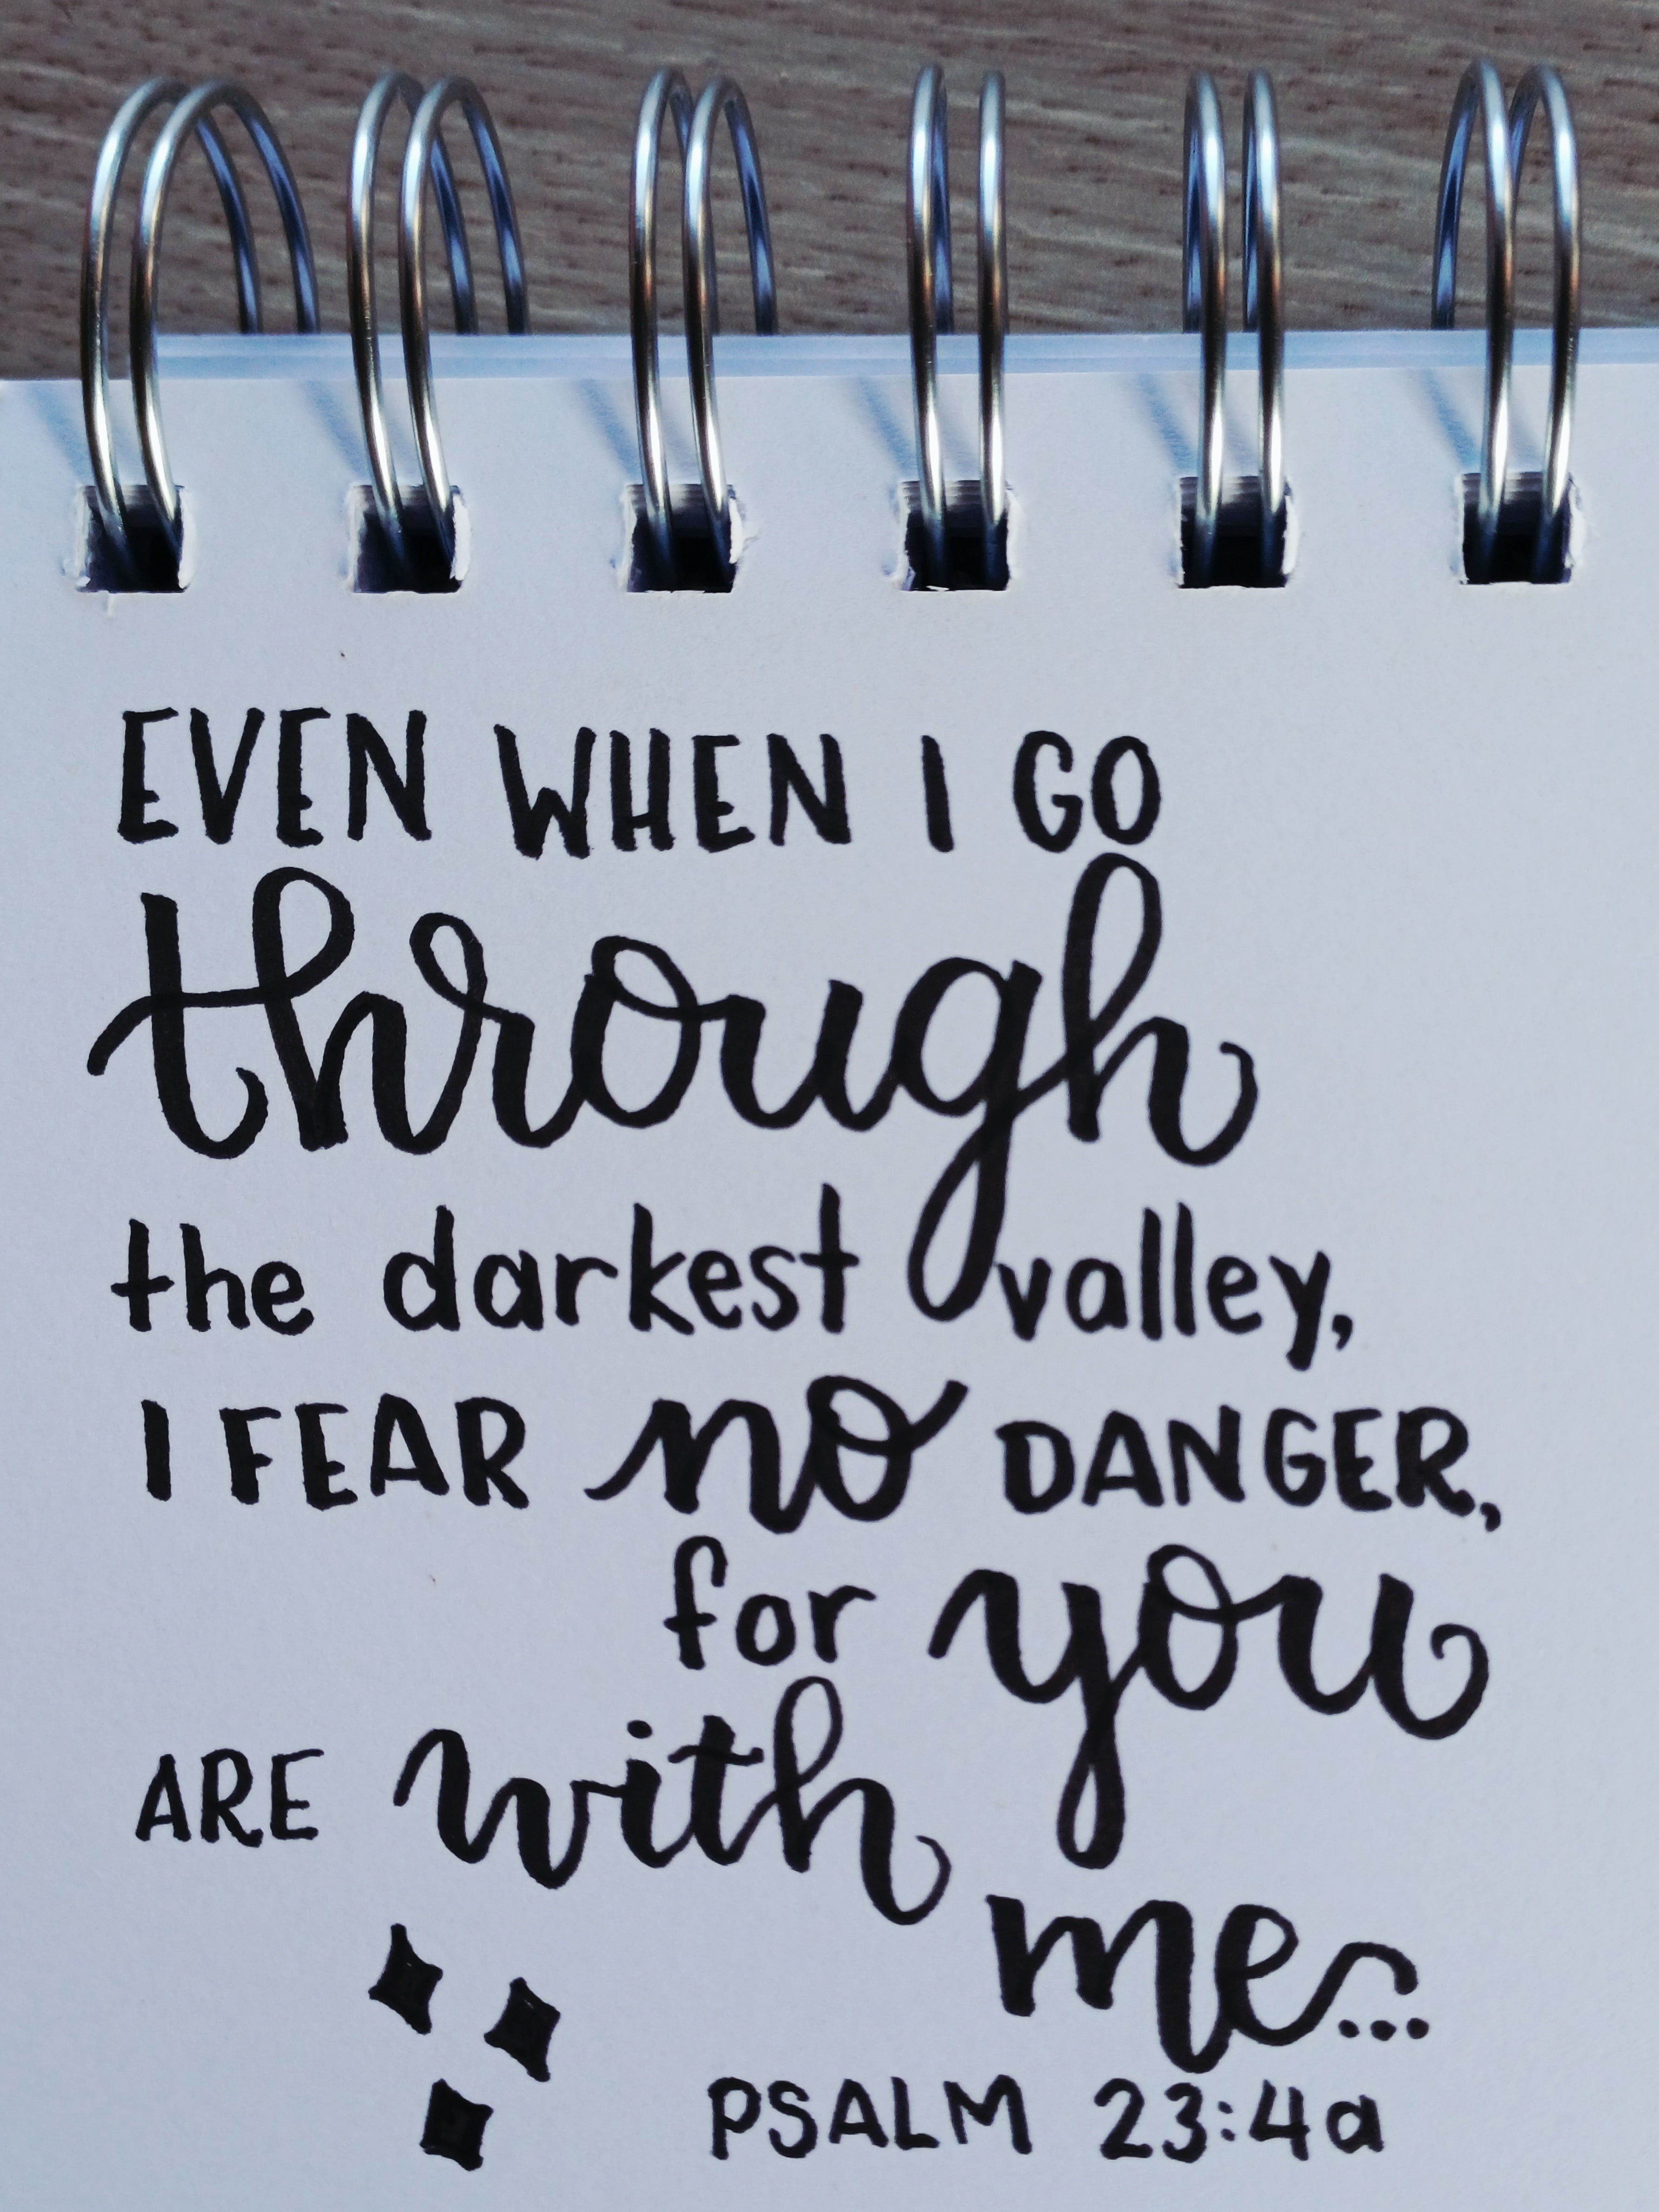 EVEN WHEN I GO
through
the darkest valley,
I FEAR no DANGER,
for you
ARE with
me...
PSALM 23:4a